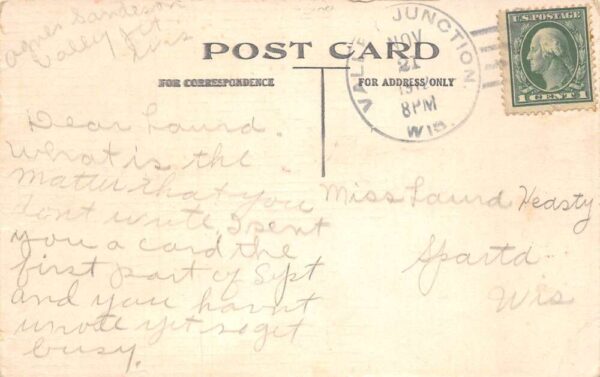 Agnes Sandeson
Valley Jct
Wis
POST CARD
FOR CORRESPONDENCE
FOR ADDRESS ONLY
VALLEY JUNCTION.
NOV
21
8PM
WIS.
U.S. POSTAGE
1 CENT 1
Dear Laurd.
What is the
matter that you
dont write I sent
you a card the
first part of Sept
and you havnt
wrote yet so get
busy.
Miss Laurd Heasty
Sparta
Wis